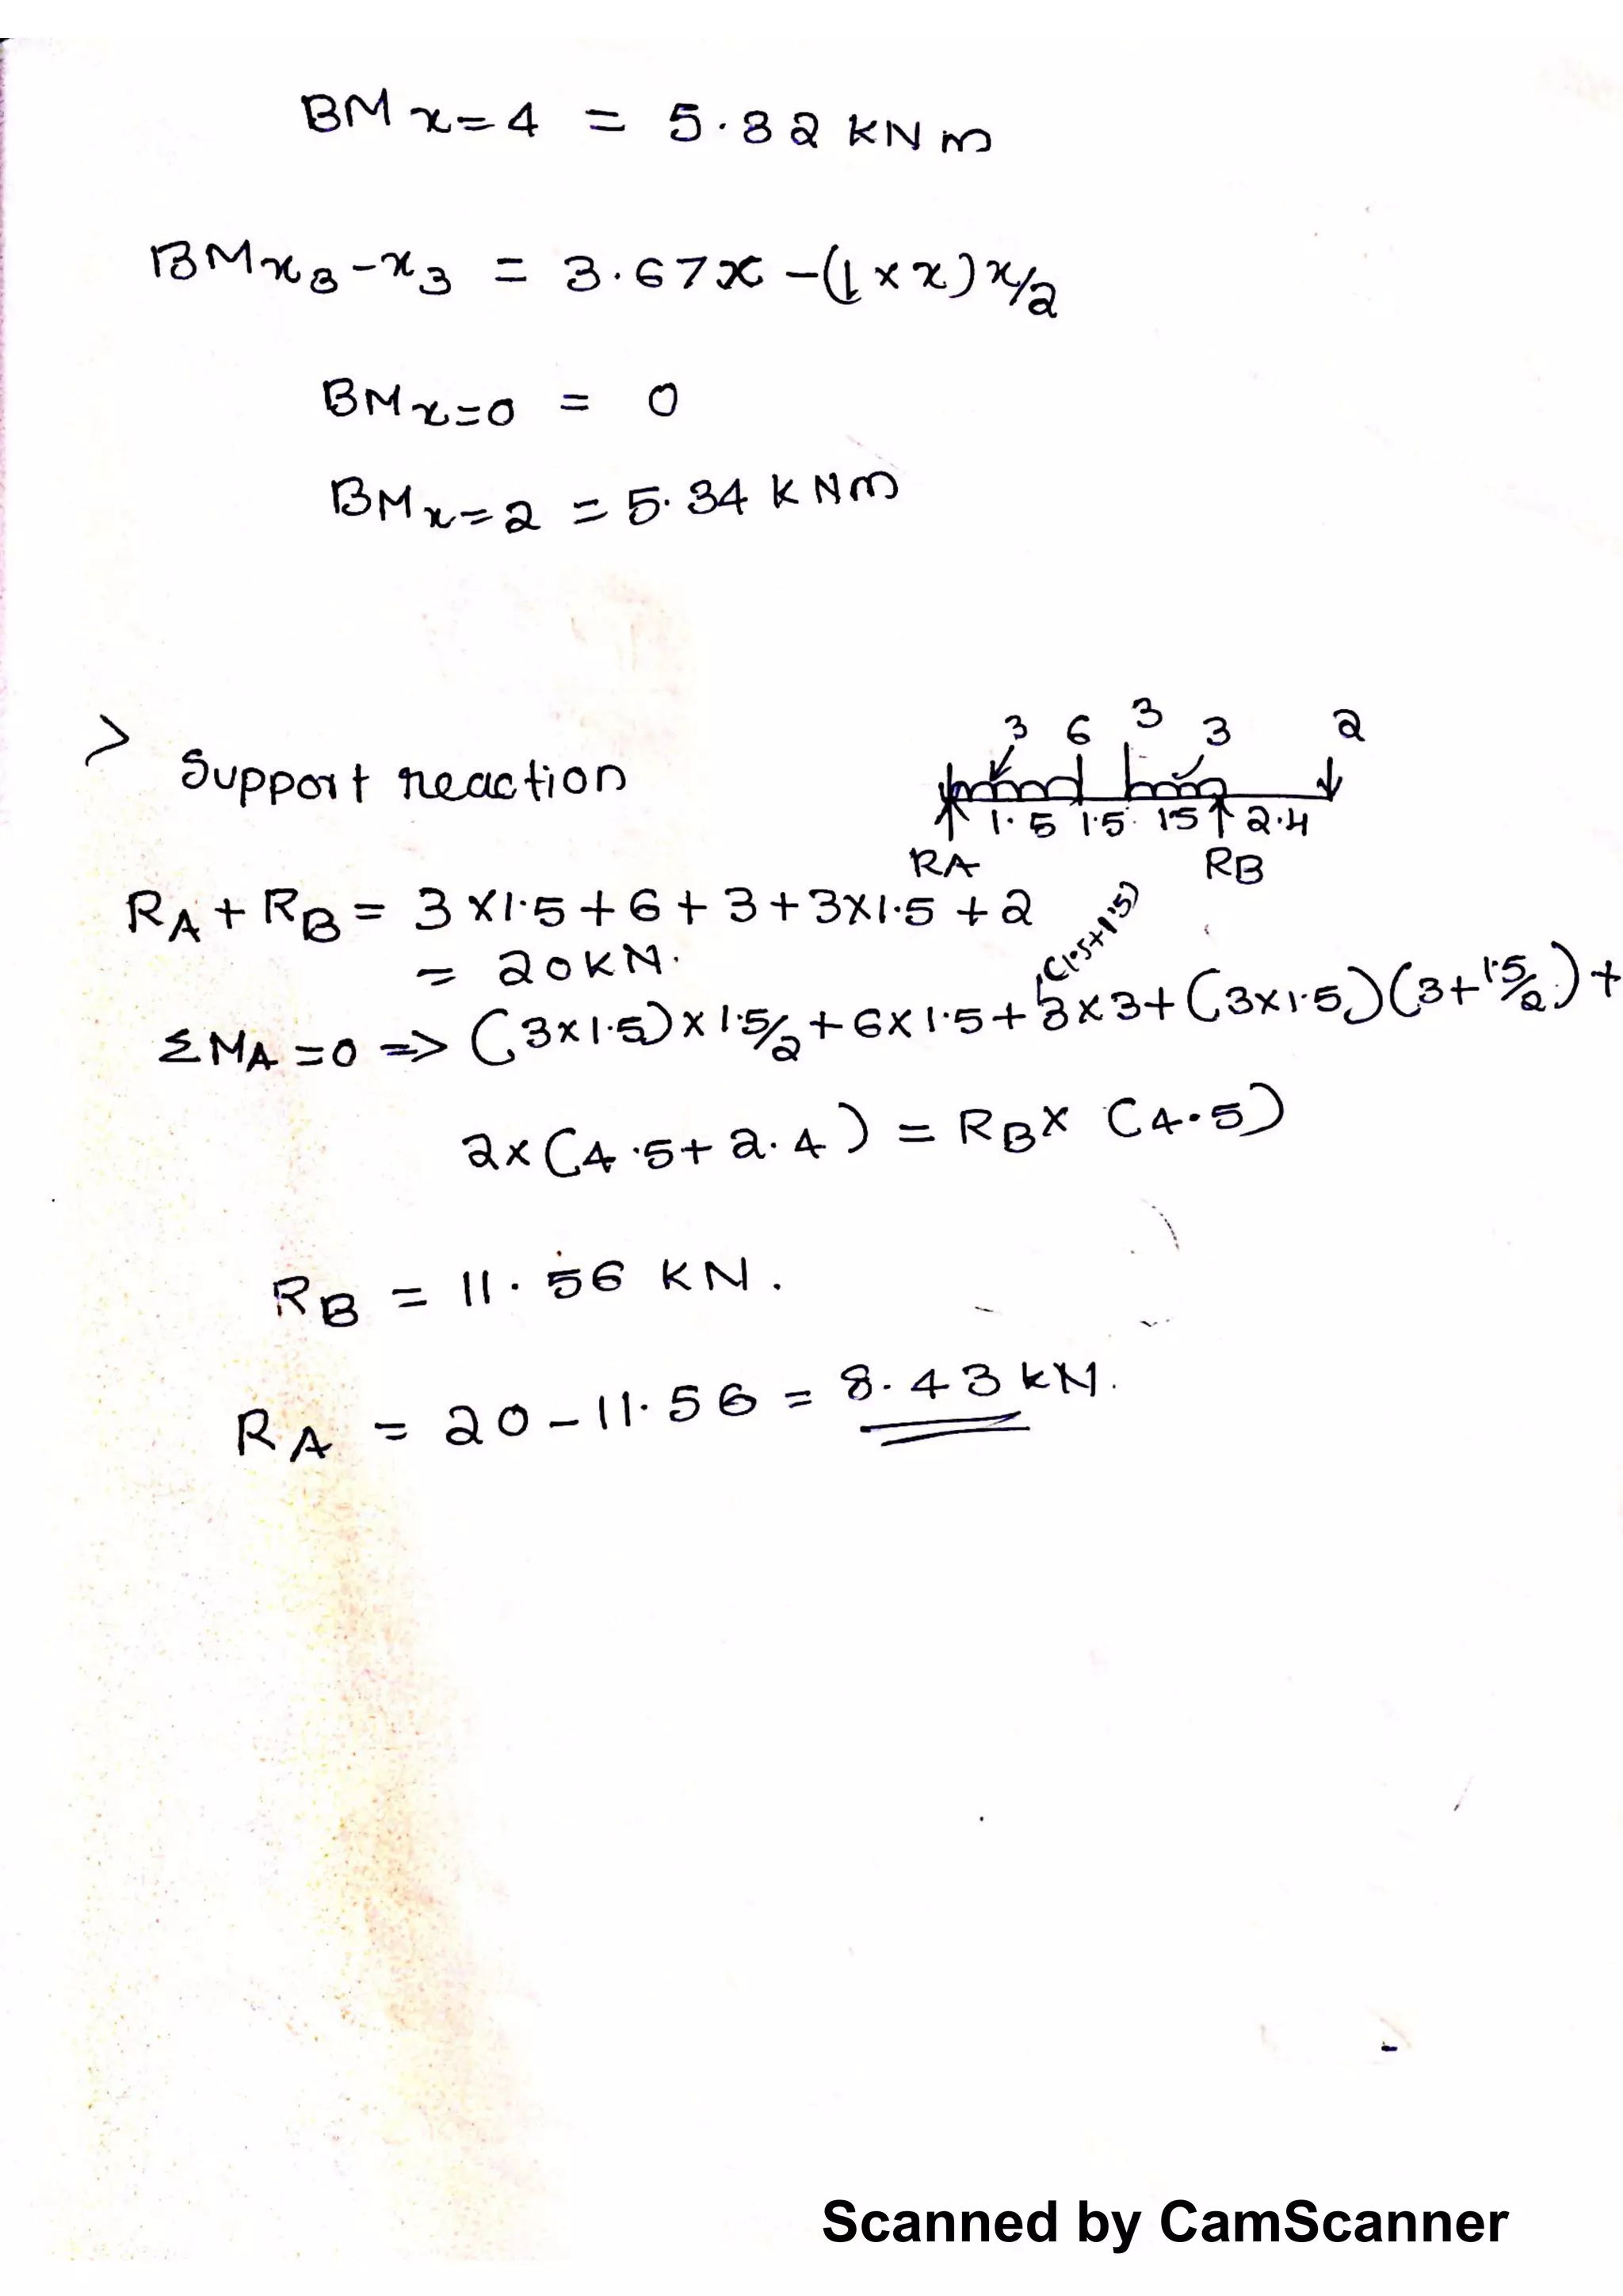 BM x=4 = 5.82 KN m
BMx3-x3 = 3.67x -(1×x)x/2
BMx=0 = 0
BMx=2 = 5.34 KNm
> Support reaction
3 6 3 3 2
1.5 1.5 15 2.4
RA RB
RA + RB = 3 X1.5 + 6 + 3 + 3X1.5 + 2
= 20KN.
(1.5+1.5)
ΣMA =0 => (3x1.5)x 1.5/2 + 6X1.5 + 3x3+(3x1.5)(3+1.5/2)+
2x(4.5+2.4) = RBX (4.5)
RB = 11.56 KN.
RA = 20-11.56 = 8.43 kN.
Scanned by CamScanner